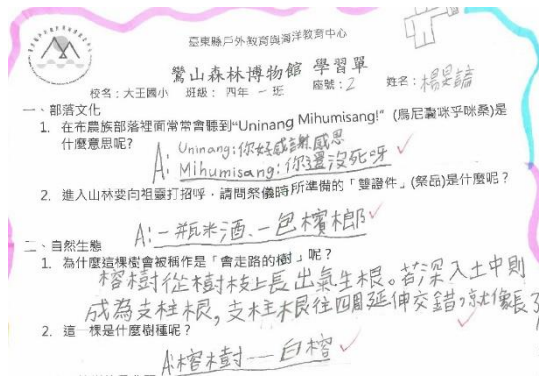 臺東縣戶外教育與海洋教育中心
鸞山森林博物館 學習單
校名：大王國小 班級： 四年 一 班 座號：2 姓名：楊晏誼
一、部落文化
1. 在布農族部落裡面常常會聽到“Uninang Mihumisang!” (烏尼囊咪乎咪桑)是
什麼意思呢?
A: Uninang:你好感謝.感恩
Mihumisang:你還沒死呀
2. 進入山林要向祖靈打招呼，請問祭儀時所準備的「雙證件」(祭品)是什麼呢？
A:一瓶米酒、一包檳榔
二、自然生態
1. 為什麼這棵樹會被稱作是「會走路的樹」呢？
榕樹從樹枝上長出氣生根。若深入土中則
成為支柱根，支柱根往四周延伸交錯，就像長了
2. 這一棵是什麼樹種呢？
A:榕樹——白榕